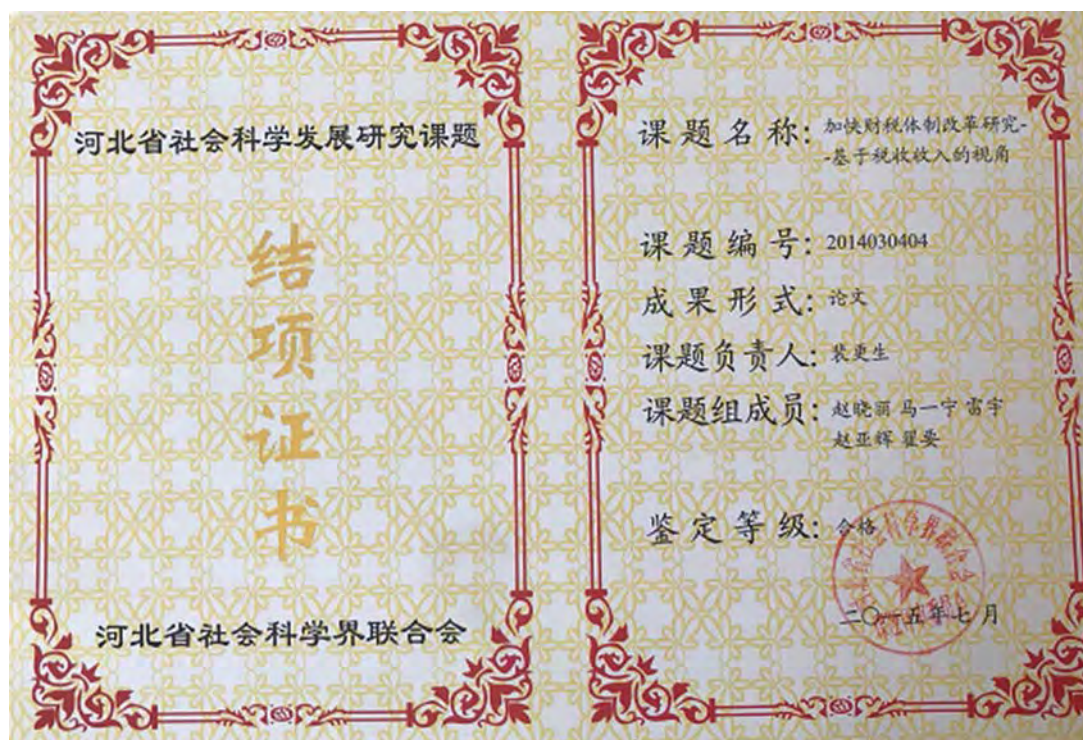 河北省社会科学发展研究课题
结
项
证
书
河北省社会科学界联合会
课题名称：加快财税体制改革研究-
-基于税收收入的视角
课题编号：2014030404
成果形式：论文
课题负责人：裴更生
课题组成员：赵晓丽 马一宁 雷宇
赵亚辉 翟要
鉴定等级：合格
二〇一五年七月